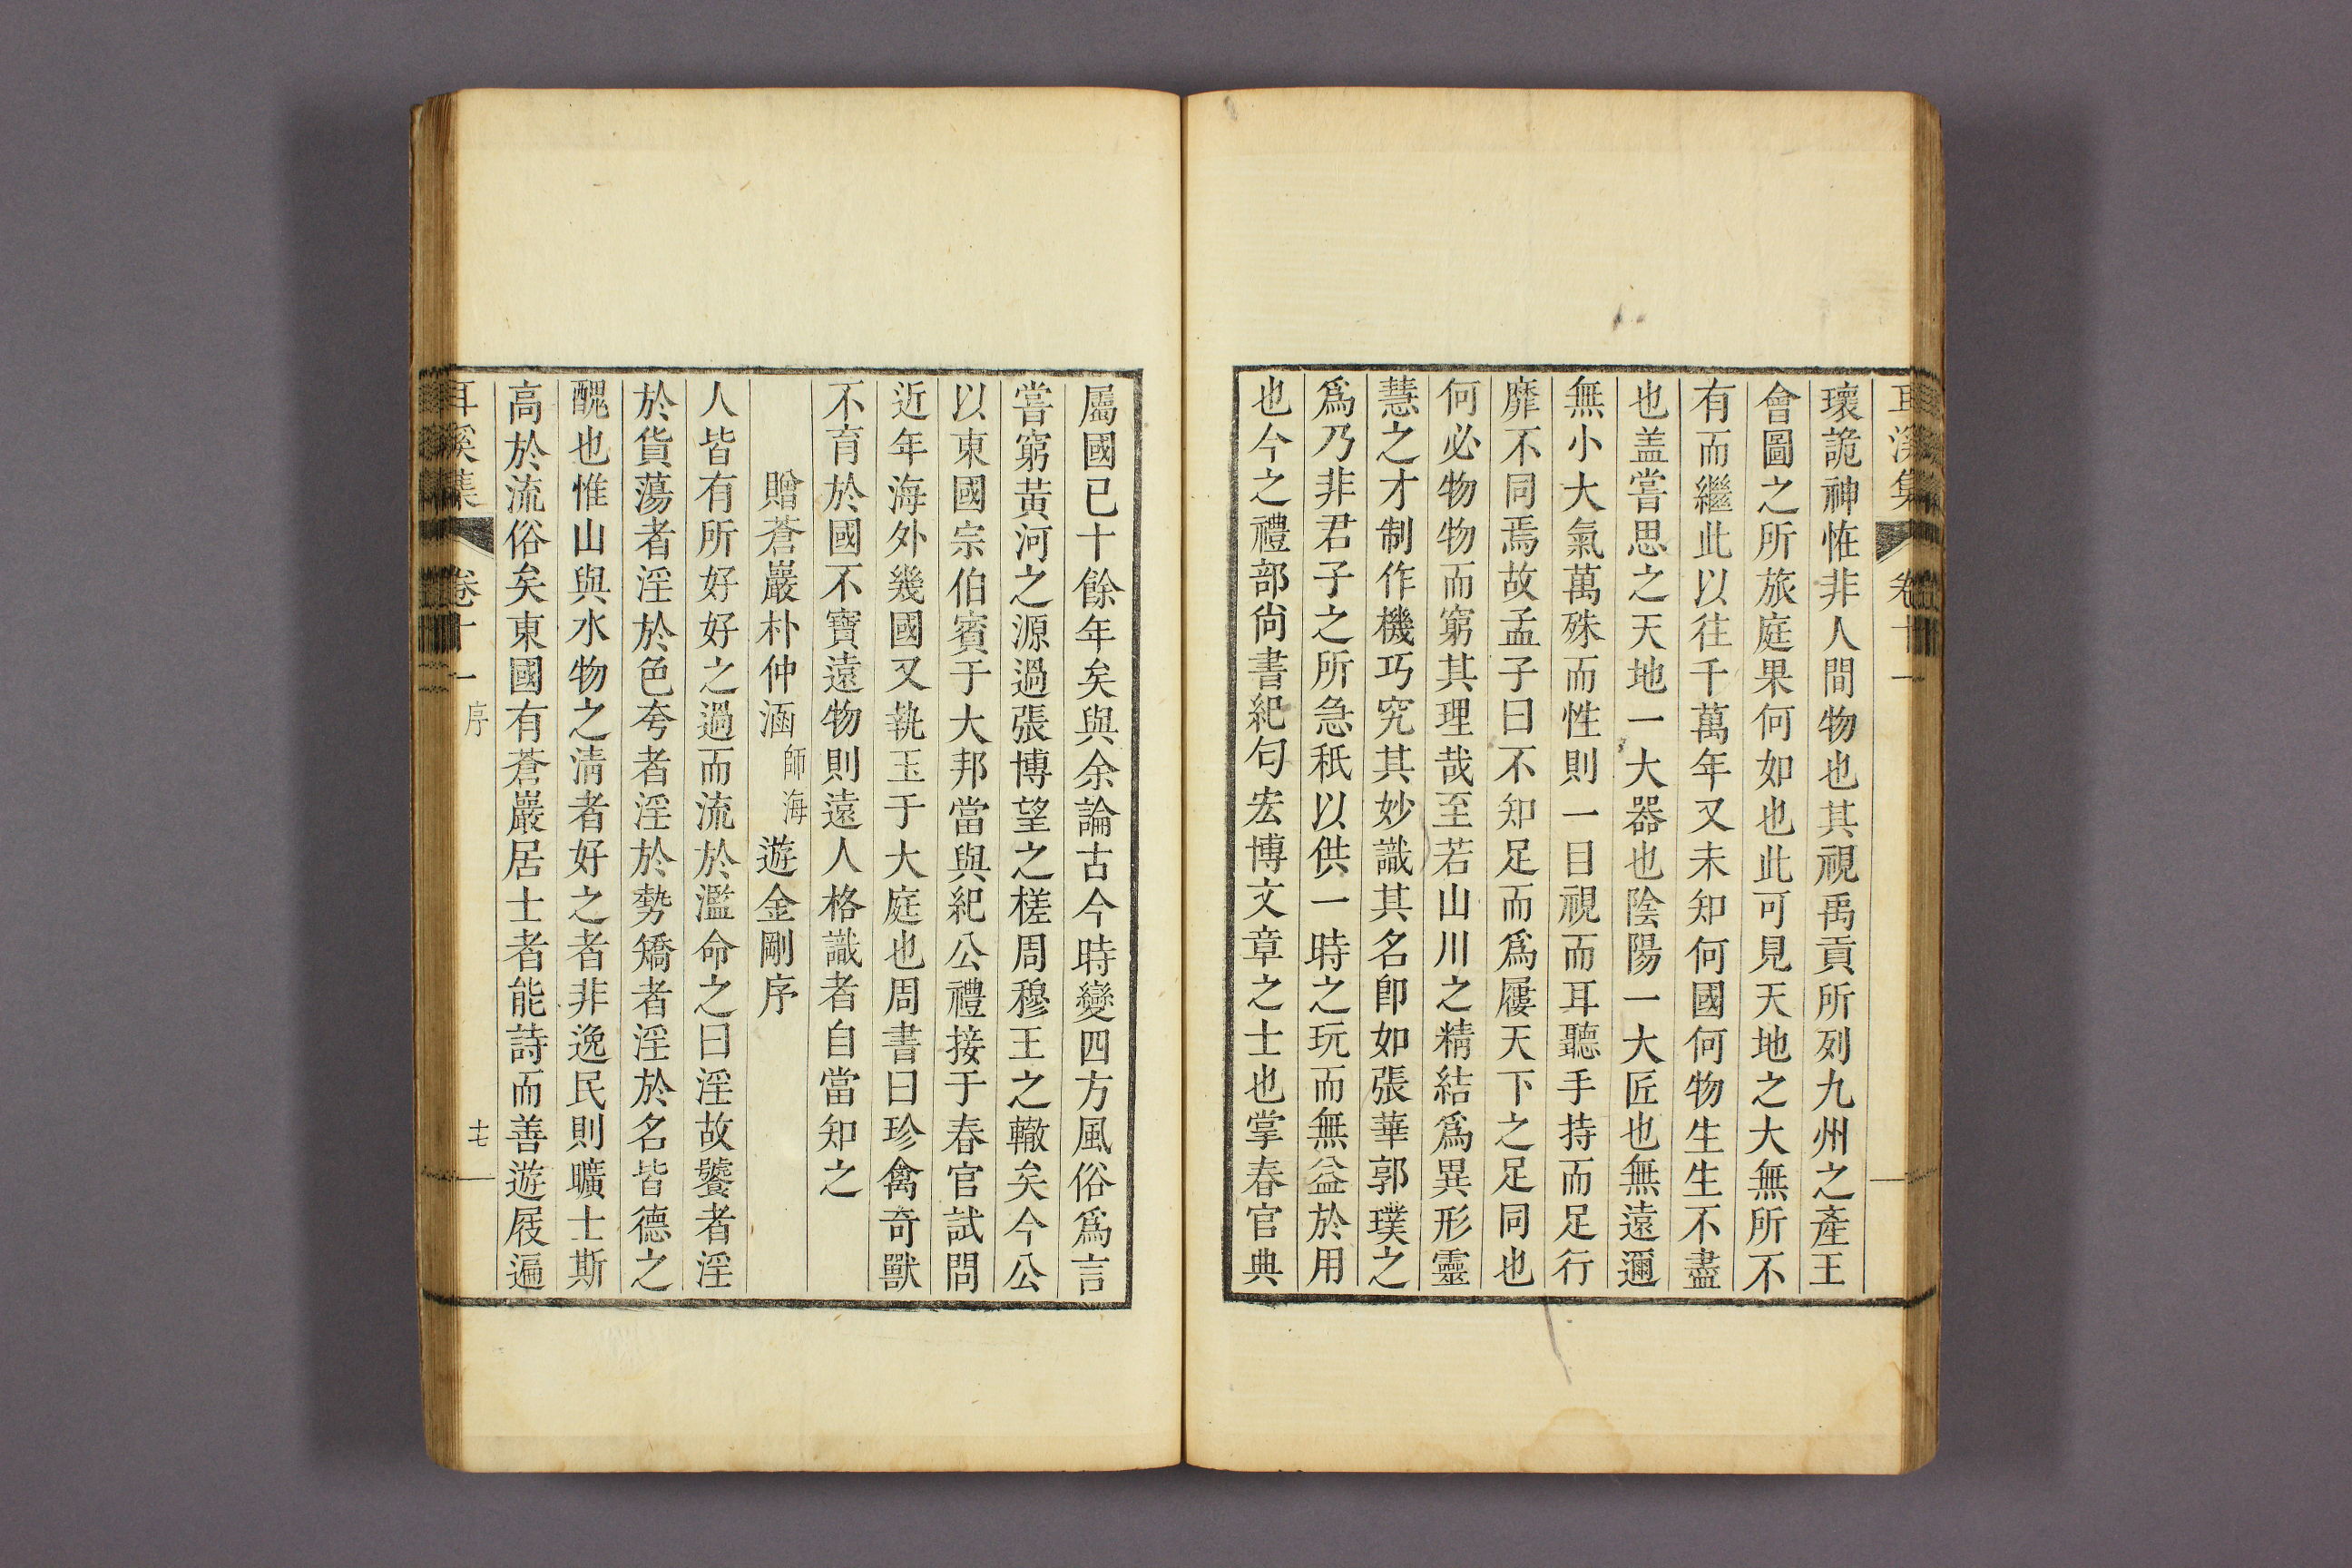 耳溪集 卷十一
瓌詭神恠非人間物也其視禹貢所列九州之產王
會圖之所旅庭果何如也此可見天地之大無所不
有而繼此以往千萬年又未知何國何物生生不盡
也盖嘗思之天地一大器也陰陽一大匠也無遠邇
無小大氣萬殊而性則一目視而耳聽手持而足行
靡不同焉故孟子曰不知足而爲屨天下之足同也
何必物物而窮其理哉至若山川之精結爲異形靈
慧之才制作機巧究其妙識其名卽如張華郭璞之
爲乃非君子之所急秖以供一時之玩而無益於用
也今之禮部尙書紀匀宏博文章之士也掌春官典
屬國已十餘年矣與余論古今時變四方風俗爲言
嘗窮黃河之源過張博望之槎周穆王之轍矣今公
以東國宗伯賓于大邦當與紀公禮接于春官試問
近年海外幾國又執玉于大庭也周書曰珍禽奇獸
不育於國不寶遠物則遠人格識者自當知之
贈蒼巖朴仲涵師海遊金剛序
人皆有所好好之過而流於濫命之曰淫故饕者淫
於貨蕩者淫於色夸者淫於勢矯者淫於名皆德之
醜也惟山與水物之淸者好之者非逸民則曠士斯
高於流俗矣東國有蒼巖居士者能詩而善遊屐遍
耳溪集 卷十一 序 十七